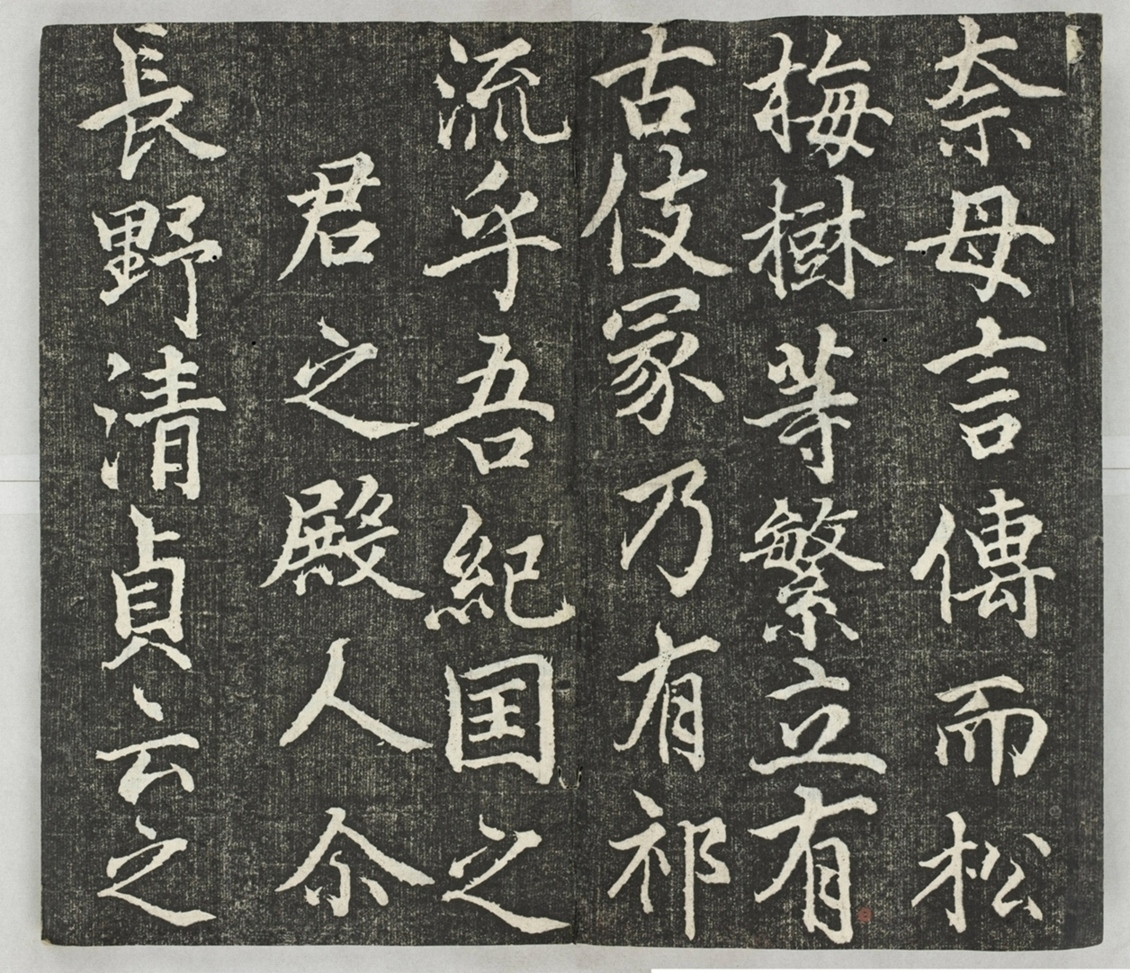 奈母言傳而松
梅樹等繁立有
古伎冢乃有祁
流乎吾紀国之
君之殿人尒
長野清貞云之